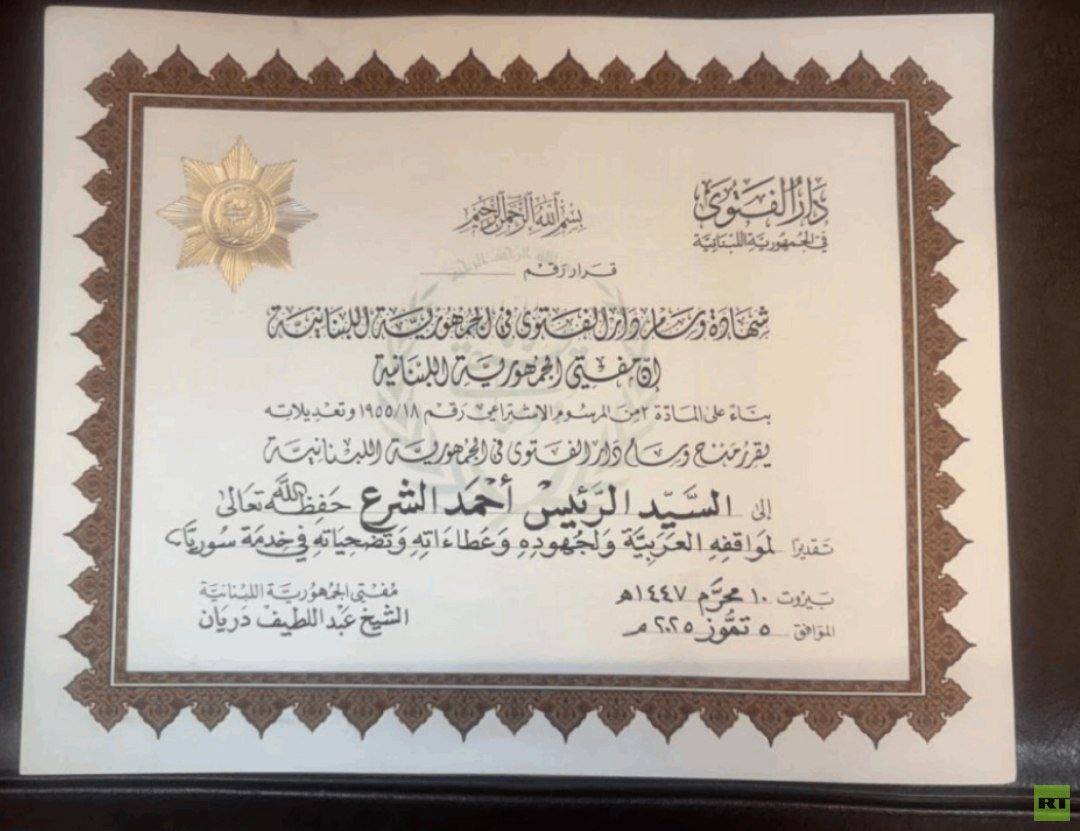 دار الفتوى
في الجمهورية اللبنانية
بسم الله الرحمن الرحيم
قرار رقم
شهادة وسام دار الفتوى في الجمهورية اللبنانية
إن مفتي الجمهورية اللبنانية
بناءً على المادة ٢ من المرسوم الاشتراعي رقم ١٩٥٥/١٨ وتعديلاته
يقرر منح وسام دار الفتوى في الجمهورية اللبنانية
إلى السَّيِّد الرَّئيس أحمَد الشرع حَفِظَهُ اللَّه تَعَالَى
تقديرًا لمواقفِهِ العَرَبِيَّة وَلجُهودِهِ وَعَطاءَاتِهِ وَتَضحِيَاتِهِ في خدمَة سوريَا
بيروت ١٠ محرَّم ١٤٤٧هـ
الموافق ٥ تمُّوز ٢٠٢٥م
مُفتي الجُمهُوريَّة اللبنانيَّة
الشيخ عَبد اللطيف دَريَان
RT